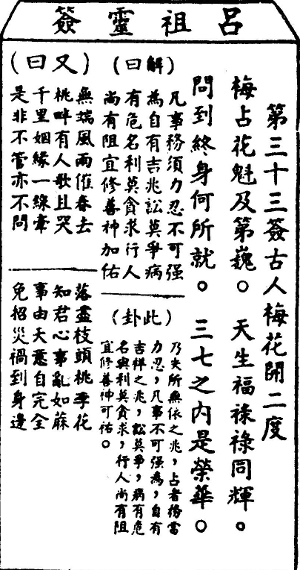 呂祖靈簽
第三十三簽古人梅花開二度
梅占花魁及第巍。天生福祿祿同輝。
問到終身何所就。三七之內是榮華。
(解曰)
凡事務須力忍不可强
為自有吉兆訟莫爭病
有危名利莫貪求行人
尚有阻宜修善神加佑
(此卦)
乃失所無依之兆,占者務當
力忍,凡事不可强為,自有
吉祥之兆,訟莫爭,病有危
名與利莫貪求,行人尚有阻
宜修善神可佑。
(又曰)
無端風雨催春去
落盡枝頭桃李花
桃畔有人歌且哭
知君心事亂如蔴
千里姻緣一線牽
事由天意自完全
是非不管亦不問
免招災禍到身邊